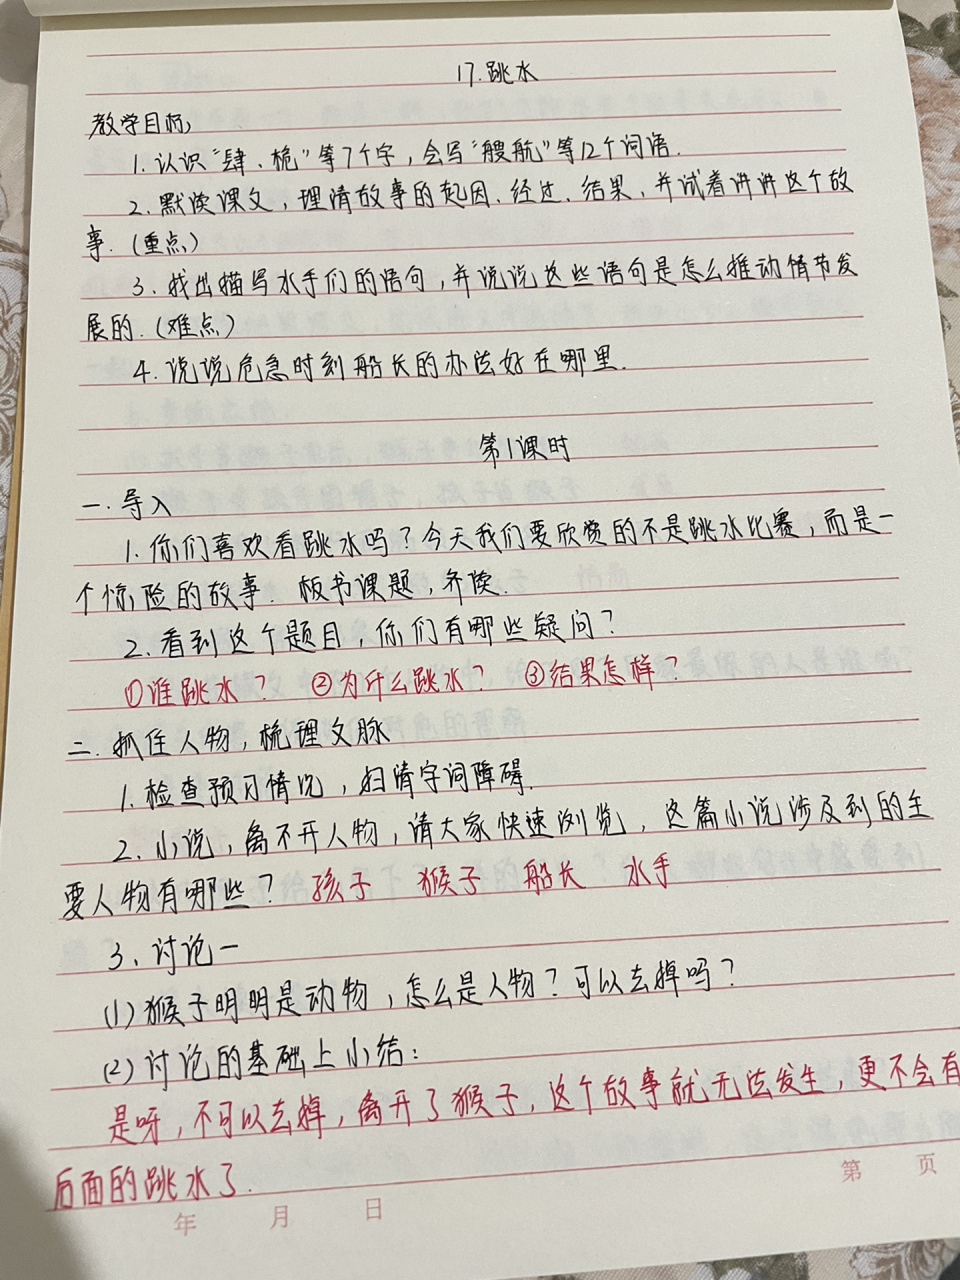 17.跳水
教学目标,
1.认识“肆、桅”等7个字,会写“艘航”等12个词语.
2.默读课文,理清故事的起因.经过.结果,并试着讲讲这个故
事.(重点)
3.找出描写水手们的语句,并说说这些语句是怎么推动情节发
展的.(难点)
4.说说危急时刻船长的办法好在哪里.
第1课时
一.导入
1.你们喜欢看跳水吗?今天我们要欣赏的不是跳水比赛,而是一
个惊险的故事.板书课题,齐读.
2.看到这个题目,你们有哪些疑问?
①谁跳水? ②为什么跳水? ③结果怎样?
二.抓住人物,梳理文脉
1.检查预习情况,扫清字词障碍.
2.小说,离不开人物,请大家快速浏览,这篇小说涉及到的主
要人物有哪些?孩子 猴子 船长 水手
3、讨论一
(1)猴子明明是动物,怎么是人物?可以去掉吗?
(2)讨论的基础上小结:
是呀,不可以去掉,离开了猴子,这个故事就无法发生,更不会有
后面的跳水了.
第 页
年 月 日